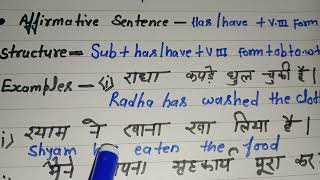 • Affirmative Sentence - Has/have + V.III form
Structure - Sub + has/have + V III form + ob + o.w
Examples - (i) राधा कपड़े धुल चुकी है।
Radha has washed the Cloth
i) श्याम ने खाना खा लिया है।
Shyam eaten the food
मैने गृहकार्य पूरा कर